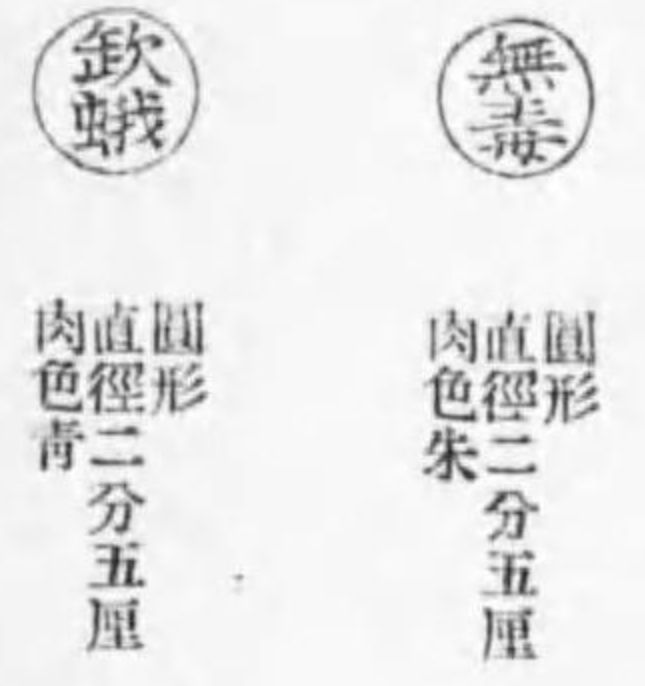 無
毒
圓形
直徑二分五厘
肉色朱
欽
蛾
圓形
直徑二分五厘
肉色青